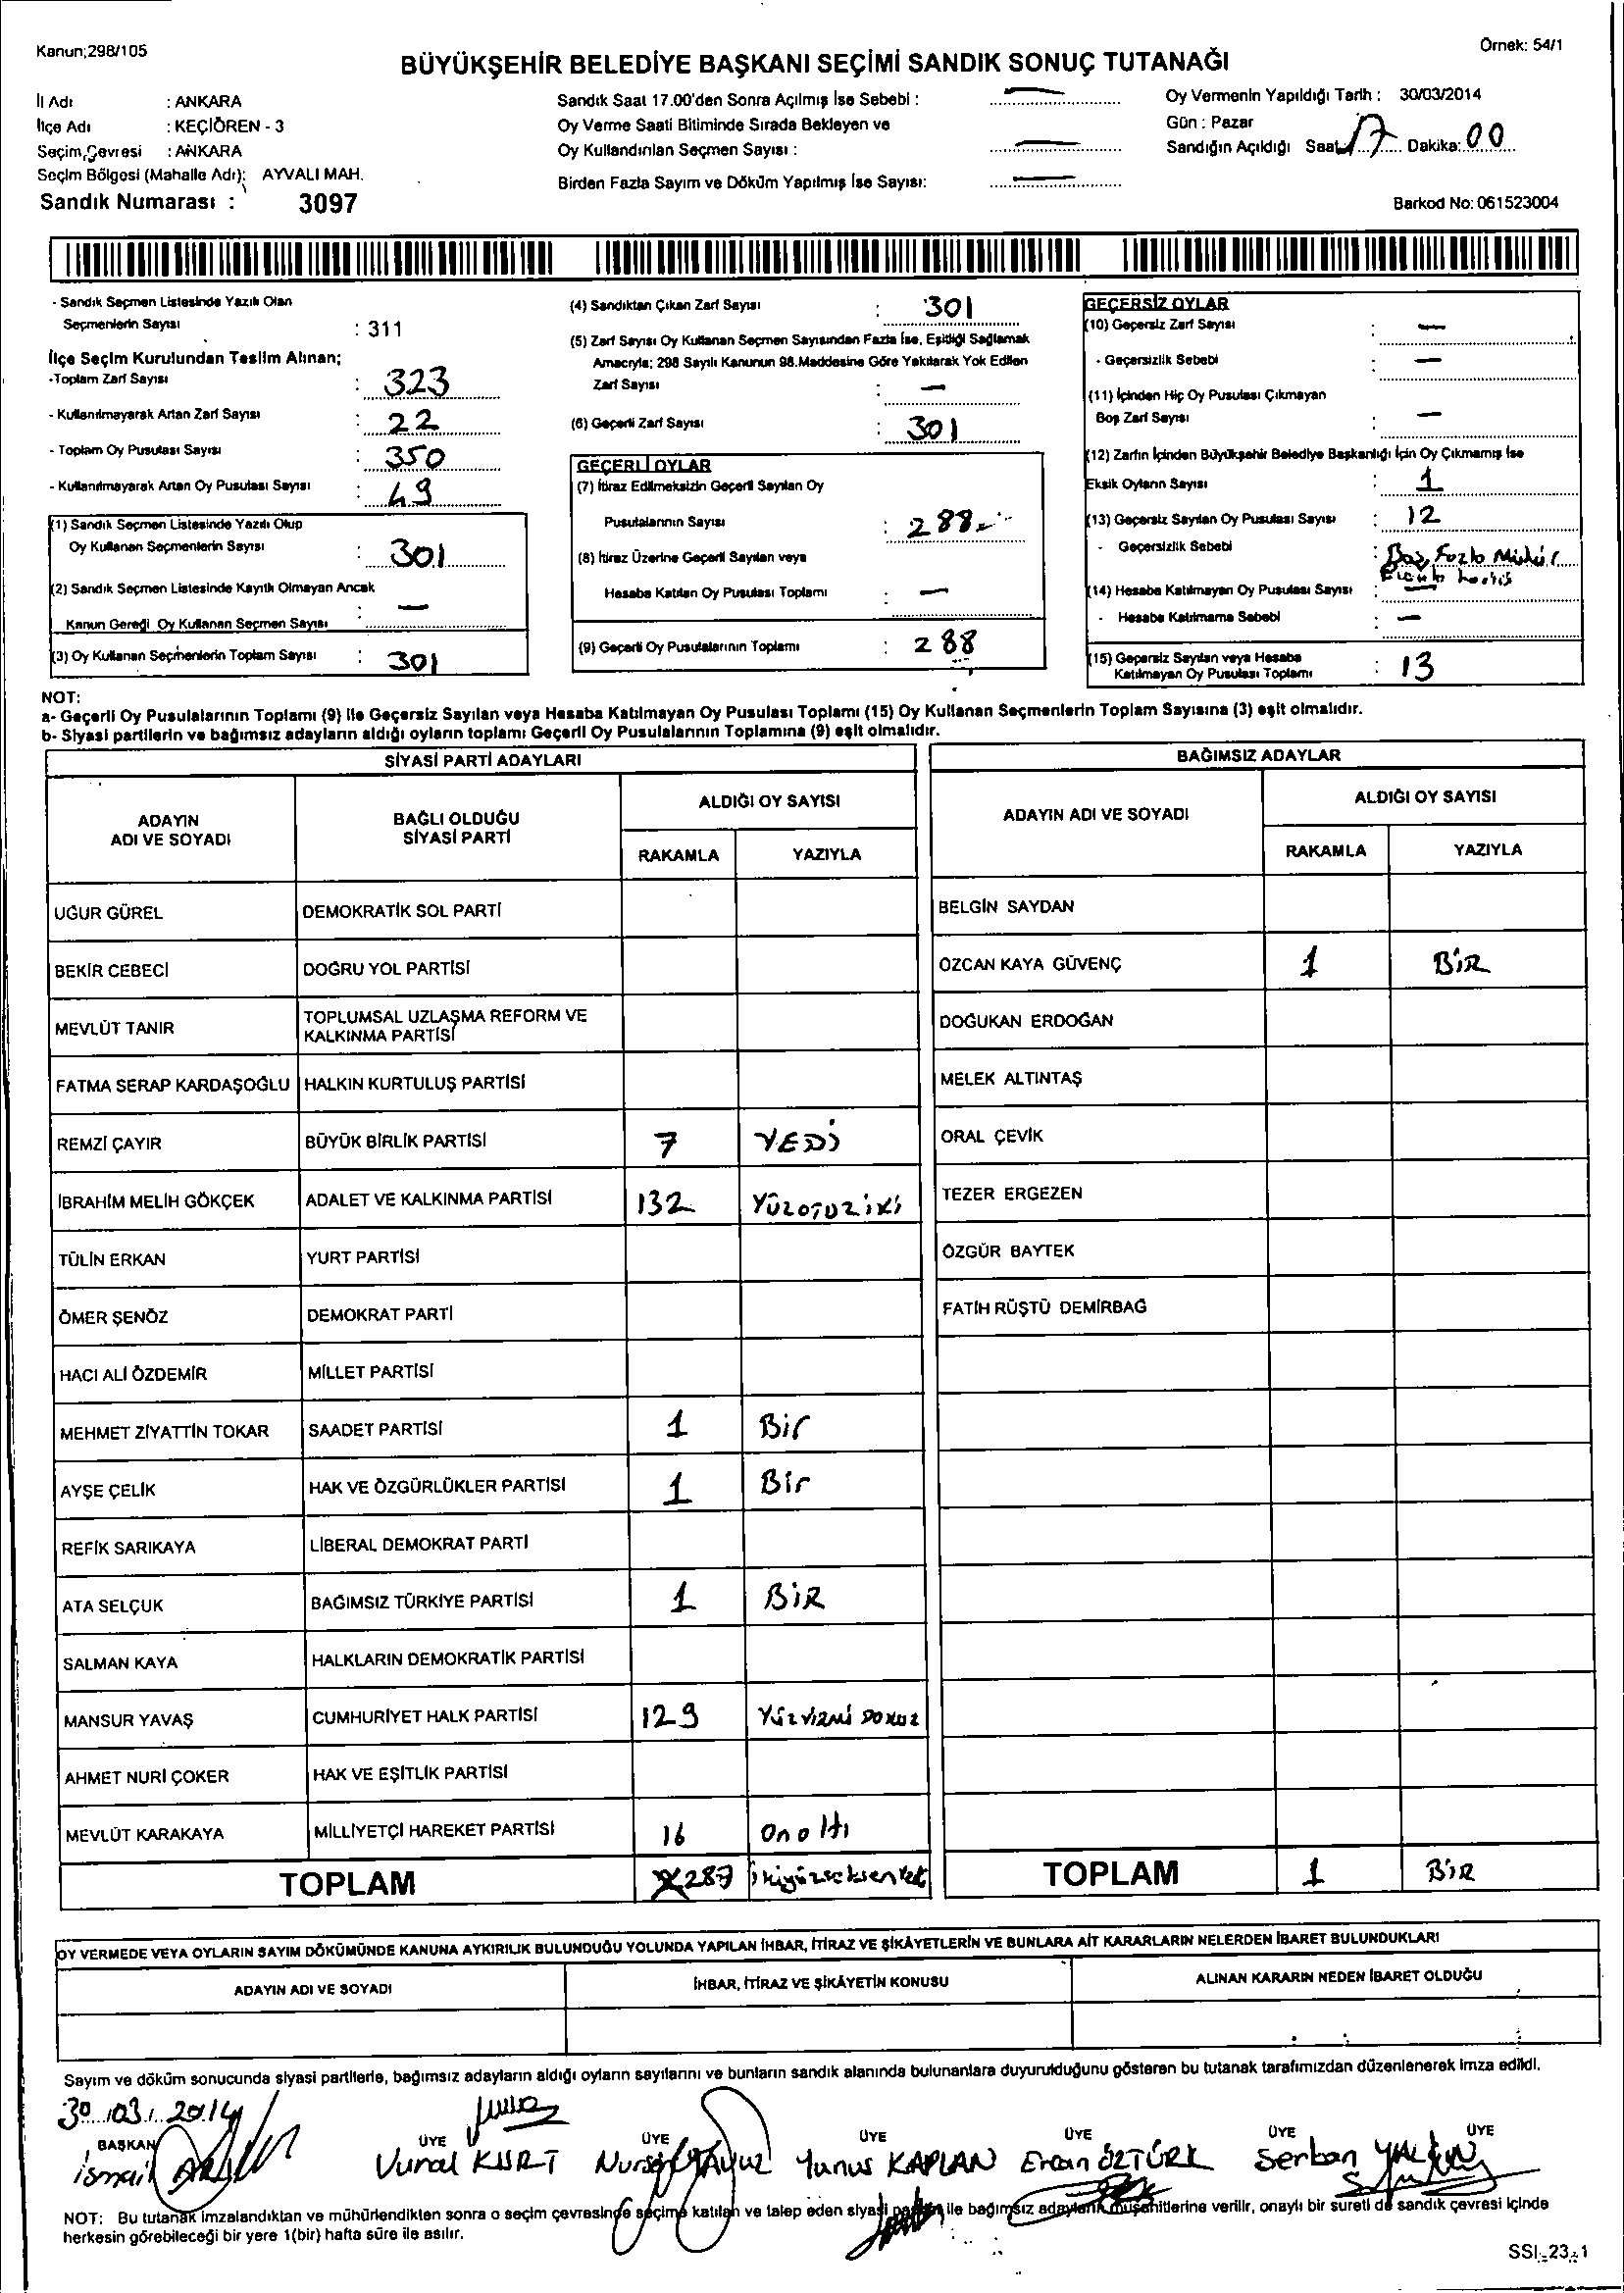 Kanun;298/105
Örnek: 54/1
BÜYÜKŞEHİR BELEDİYE BAŞKANI SEÇİMİ SANDIK SONUÇ TUTANAĞI
İl Adı : ANKARA
İlçe Adı : KEÇİÖREN - 3
Seçim Çevresi : ANKARA
Seçim Bölgesi (Mahalle Adı); AYVALI MAH.
Sandık Numarası : 3097
Sandık Saat 17.00'den Sonra Açılmış İse Sebebi : —
Oy Verme Saati Bitiminde Sırada Bekleyen ve
Oy Kullandırılan Seçmen Sayısı : —
Birden Fazla Sayım ve Döküm Yapılmış İse Sayısı: —
Oy Vermenin Yapıldığı Tarih : 30/03/2014
Gün : Pazar
Sandığın Açıldığı Saat 17 Dakika: 00
Barkod No: 061523004
- Sandık Seçmen Listesinde Yazılı Olan
Seçmenlerin Sayısı : 311
İlçe Seçim Kurulundan Teslim Alınan;
-Toplam Zarf Sayısı : 323
- Kullanılmayarak Artan Zarf Sayısı : 22
- Toplam Oy Pusulası Sayısı : 350
- Kullanılmayarak Artan Oy Pusulası Sayısı : 49
(1) Sandık Seçmen Listesinde Yazılı Olup
Oy Kullanan Seçmenlerin Sayısı : 301
(2) Sandık Seçmen Listesinde Kayıtlı Olmayan Ancak
Kanun Gereği Oy Kullanan Seçmen Sayısı : —
(3) Oy Kullanan Seçmenlerin Toplam Sayısı : 301
(4) Sandıktan Çıkan Zarf Sayısı : 301
(5) Zarf Sayısı Oy Kullanan Seçmen Sayısından Fazla İse, Eşitliği Sağlamak
Amacıyla; 298 Sayılı Kanunun 98.Maddesine Göre Yakılarak Yok Edilen
Zarf Sayısı : —
(6) Geçerli Zarf Sayısı : 301
GEÇERLİ OYLAR
(7) İtiraz Edilmeksizin Geçerli Sayılan Oy
Pusulalarının Sayısı : 288
(8) İtiraz Üzerine Geçerli Sayılan veya
Hesaba Katılan Oy Pusulası Toplamı : —
(9) Geçerli Oy Pusulalarının Toplamı : 288
GEÇERSİZ OYLAR
(10) Geçersiz Zarf Sayısı : —
- Geçersizlik Sebebi : —
(11) İçinden Hiç Oy Pusulası Çıkmayan
Boş Zarf Sayısı : —
(12) Zarfın İçinden Büyükşehir Belediye Başkanlığı İçin Oy Çıkmamış İse
Eksik Oyların Sayısı : 1
(13) Geçersiz Sayılan Oy Pusulası Sayısı : 12
- Geçersizlik Sebebi : Boş, Fazla Mühür
(14) Hesaba Katılmayan Oy Pusulası Sayısı : —
- Hesaba Katılmama Sebebi : —
(15) Geçersiz Sayılan veya Hesaba
Katılmayan Oy Pusulası Toplamı : 13
NOT:
a- Geçerli Oy Pusulalarının Toplamı (9) ile Geçersiz Sayılan veya Hesaba Katılmayan Oy Pusulası Toplamı (15) Oy Kullanan Seçmenlerin Toplam Sayısına (3) eşit olmalıdır.
b- Siyasi partilerin ve bağımsız adayların aldığı oyların toplamı Geçerli Oy Pusulalarının Toplamına (9) eşit olmalıdır.
SİYASİ PARTİ ADAYLARI
ADAYIN ADI VE SOYADI BAĞLI OLDUĞU SİYASİ PARTİ ALDIĞI OY SAYISI
RAKAMLA YAZIYLA
UĞUR GÜREL DEMOKRATİK SOL PARTİ
BEKİR CEBECİ DOĞRU YOL PARTİSİ
MEVLÜT TANIR TOPLUMSAL UZLAŞMA REFORM VE KALKINMA PARTİSİ
FATMA SERAP KARDAŞOĞLU HALKIN KURTULUŞ PARTİSİ
REMZİ ÇAYIR BÜYÜK BİRLİK PARTİSİ 7 YEDİ
İBRAHİM MELİH GÖKÇEK ADALET VE KALKINMA PARTİSİ 132 YÜZOTUZİKİ
TÜLİN ERKAN YURT PARTİSİ
ÖMER ŞENÖZ DEMOKRAT PARTİ
HACI ALİ ÖZDEMİR MİLLET PARTİSİ
MEHMET ZİYATTİN TOKAR SAADET PARTİSİ 1 Bir
AYŞE ÇELİK HAK VE ÖZGÜRLÜKLER PARTİSİ 1 Bir
REFİK SARIKAYA LİBERAL DEMOKRAT PARTİ
ATA SELÇUK BAĞIMSIZ TÜRKİYE PARTİSİ 1 BİR
SALMAN KAYA HALKLARIN DEMOKRATİK PARTİSİ
MANSUR YAVAŞ CUMHURİYET HALK PARTİSİ 129 YÜZYİRMİ DOKUZ
AHMET NURİ ÇOKER HAK VE EŞİTLİK PARTİSİ
MEVLÜT KARAKAYA MİLLİYETÇİ HAREKET PARTİSİ 16 On altı
TOPLAM 287
BAĞIMSIZ ADAYLAR
ADAYIN ADI VE SOYADI ALDIĞI OY SAYISI
RAKAMLA YAZIYLA
BELGİN SAYDAN
ÖZCAN KAYA GÜVENÇ 1 BİR
DOĞUKAN ERDOĞAN
MELEK ALTINTAŞ
ORAL ÇEVİK
TEZER ERGEZEN
ÖZGÜR BAYTEK
FATİH RÜŞTÜ DEMİRBAĞ
TOPLAM 1 BİR
OY VERMEDE VEYA OYLARIN SAYIM DÖKÜMÜNDE KANUNA AYKIRILIK BULUNDUĞU YOLUNDA YAPILAN İHBAR, İTİRAZ VE ŞİKÂYETLERİN VE BUNLARA AİT KARARLARIN NELERDEN İBARET BULUNDUKLARI
ADAYIN ADI VE SOYADI İHBAR, İTİRAZ VE ŞİKÂYETİN KONUSU ALINAN KARARIN NEDEN İBARET OLDUĞU
Sayım ve döküm sonucunda siyasi partilerle, bağımsız adayların aldığı oyların sayılarını ve bunların sandık alanında bulunanlara duyurulduğunu gösteren bu tutanak tarafımızdan düzenlenerek imza edildi.
30/03/2014
BAŞKAN ÜYE ÜYE ÜYE ÜYE ÜYE ÜYE
İsmail Vural KURT Yunus KAPLAN Ercan ÖZTÜRK Serkan YALÇIN
NOT: Bu tutanak imzalandıktan ve mühürlendikten sonra o seçim çevresinde seçime katılan ve talep eden siyasi partiler ile bağımsız adayların müşahitlerine verilir, onaylı bir sureti de sandık çevresi içinde
herkesin görebileceği bir yere 1(bir) hafta süre ile asılır.
SSI-23-1